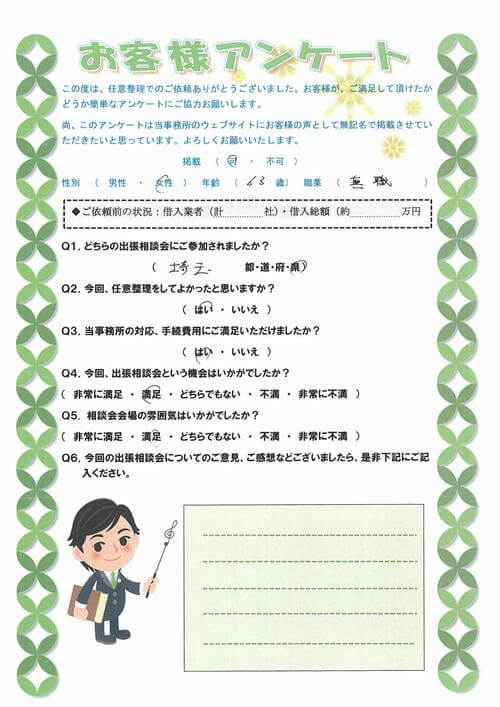 お客様アンケート
この度は、任意整理でのご依頼ありがとうございました。お客様が、ご満足して頂けたか
どうか簡単なアンケートにご協力お願いします。
尚、このアンケートは当事務所のウェブサイトにお客様の声として無記名で掲載させてい
ただきたいと思っています。よろしくお願いいたします。
掲載 ( 可 ・ 不可 )
性別 ( 男性 ・ 女性 ) 年齢 ( 63 歳) 職業 ( 無職 )
◆ご依頼前の状況：借入業者（計 社）・借入総額（約 万円
Q1. どちらの出張相談会にご参加されましたか？
( 埼玉 都・道・府・県)
Q2. 今回、任意整理をしてよかったと思いますか？
( はい ・ いいえ )
Q3. 当事務所の対応、手続費用にご満足いただけましたか？
( はい ・ いいえ )
Q4. 今回、出張相談会という機会はいかがでしたか？
( 非常に満足 ・ 満足 ・ どちらでもない ・ 不満 ・ 非常に不満 )
Q5. 相談会会場の雰囲気はいかがでしたか？
( 非常に満足 ・ 満足 ・ どちらでもない ・ 不満 ・ 非常に不満 )
Q6. 今回の出張相談会についてのご意見、ご感想などございましたら、是非下記にご記
入ください。